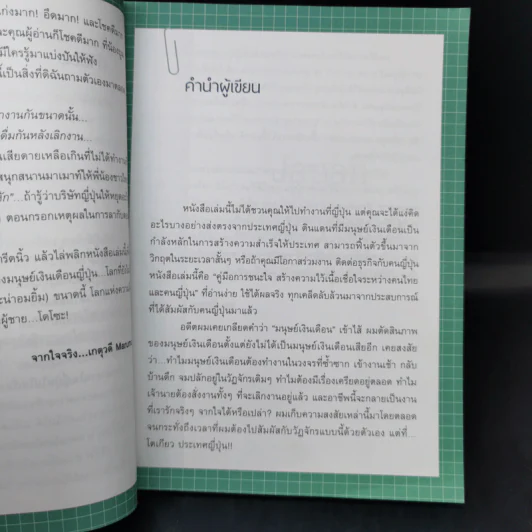 ก่งมาก! อึดมาก! และโชคดีมาก
ะคุณผู้อ่านก็โชคดีมาก ที่
มีใครรู้มาแบ่งปันให้ฟัง
นี้เป็นสิ่งที่ดิฉันถามตัวเองมาตลอด
างานกันขนาดนั้น...
ดื่มกันหลังเลิกงาน...
นเสียดายเหลือเกินที่ไม่ได้ทำงาน
สนุกสนานมาเมาท์ให้พี่น้องชาว
รัก"...ถ้ารู้ว่าบริษัทญี่ปุ่นให้หยุด
ตอนกรอกเหตุผลในการลา
รีดนิ้ว แล้วไล่พลิกหนังสือเล่มนี้
งมนุษย์เงินเดือนญี่ปุ่น...โลกที่
ะน่าอมยิ้ม) ขนาดนี้ โลกแห่งความ
ผู้ชาย...โดโซะ!
จากใจจริง...เกตุวดี Marum
คำนำผู้เขียน
หนังสือเล่มนี้ไม่ได้ชวนคุณให้ไปทำงานที่ญี่ปุ่น แต่คุณจะได้แง่คิด
อะไรบางอย่างส่งตรงจากประเทศญี่ปุ่น ดินแดนที่มีมนุษย์เงินเดือนเป็น
กำลังหลักในการสร้างความสำเร็จให้ประเทศ สามารถฟื้นตัวขึ้นมาจาก
วิกฤตในระยะเวลาสั้นๆ หรือถ้าคุณมีโอกาสร่วมงาน ติดต่อธุรกิจกับคนญี่ปุ่น
หนังสือเล่มนี้คือ "คู่มือการชนะใจ สร้างความไว้เนื้อเชื่อใจระหว่างคนไทย
และคนญี่ปุ่น" ที่อ่านง่าย ใช้ได้ผลจริง ทุกเคล็ดลับล้วนมาจากประสบการณ์
ที่ได้สัมผัสกับคนญี่ปุ่นมาแล้ว
อดีตผมเคยเกลียดคำว่า "มนุษย์เงินเดือน" เข้าไส้ ผมตัดสินสภาพ
ของมนุษย์เงินเดือนตั้งแต่ยังไม่ได้เป็นมนุษย์เงินเดือนเสียอีก เคยสงสัย
ว่า...ทำไมมนุษย์เงินเดือนต้องทำงานในวงจรที่ซ้ำซาก เข้างานเช้า กลับ
บ้านดึก จมปลักอยู่ในวัฏจักรเดิมๆ ทำไมต้องมีเรื่องเครียดอยู่ตลอด ทำไม
เจ้านายต้องสั่งงานทั้งๆ ที่จะเลิกงานอยู่แล้ว และอาชีพนี้จะกลายเป็นงาน
ที่เรารักจริงๆ จากใจได้หรือเปล่า? ผมเก็บความสงสัยเหล่านี้มาโดยตลอด
จนกระทั่งถึงเวลาที่ผมต้องไปสัมผัสกับวัฏจักรแบบนี้ด้วยตัวเอง แต่ที่...
โตเกียว ประเทศญี่ปุ่น!!